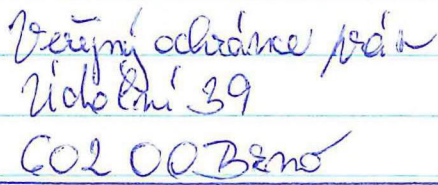 Veřejný ochránce práv
Údolní 39
602 00 Brno